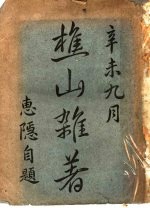 辛未九月
樵山雜著
惠隱自題